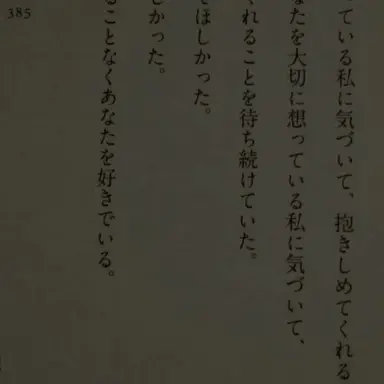 ている私に気づいて、抱きしめてくれる
なたを大切に想っている私に気づいて、
くれることを待ち続けていた。
てほしかった。
しかった。
ることなくあなたを好きでいる。
385